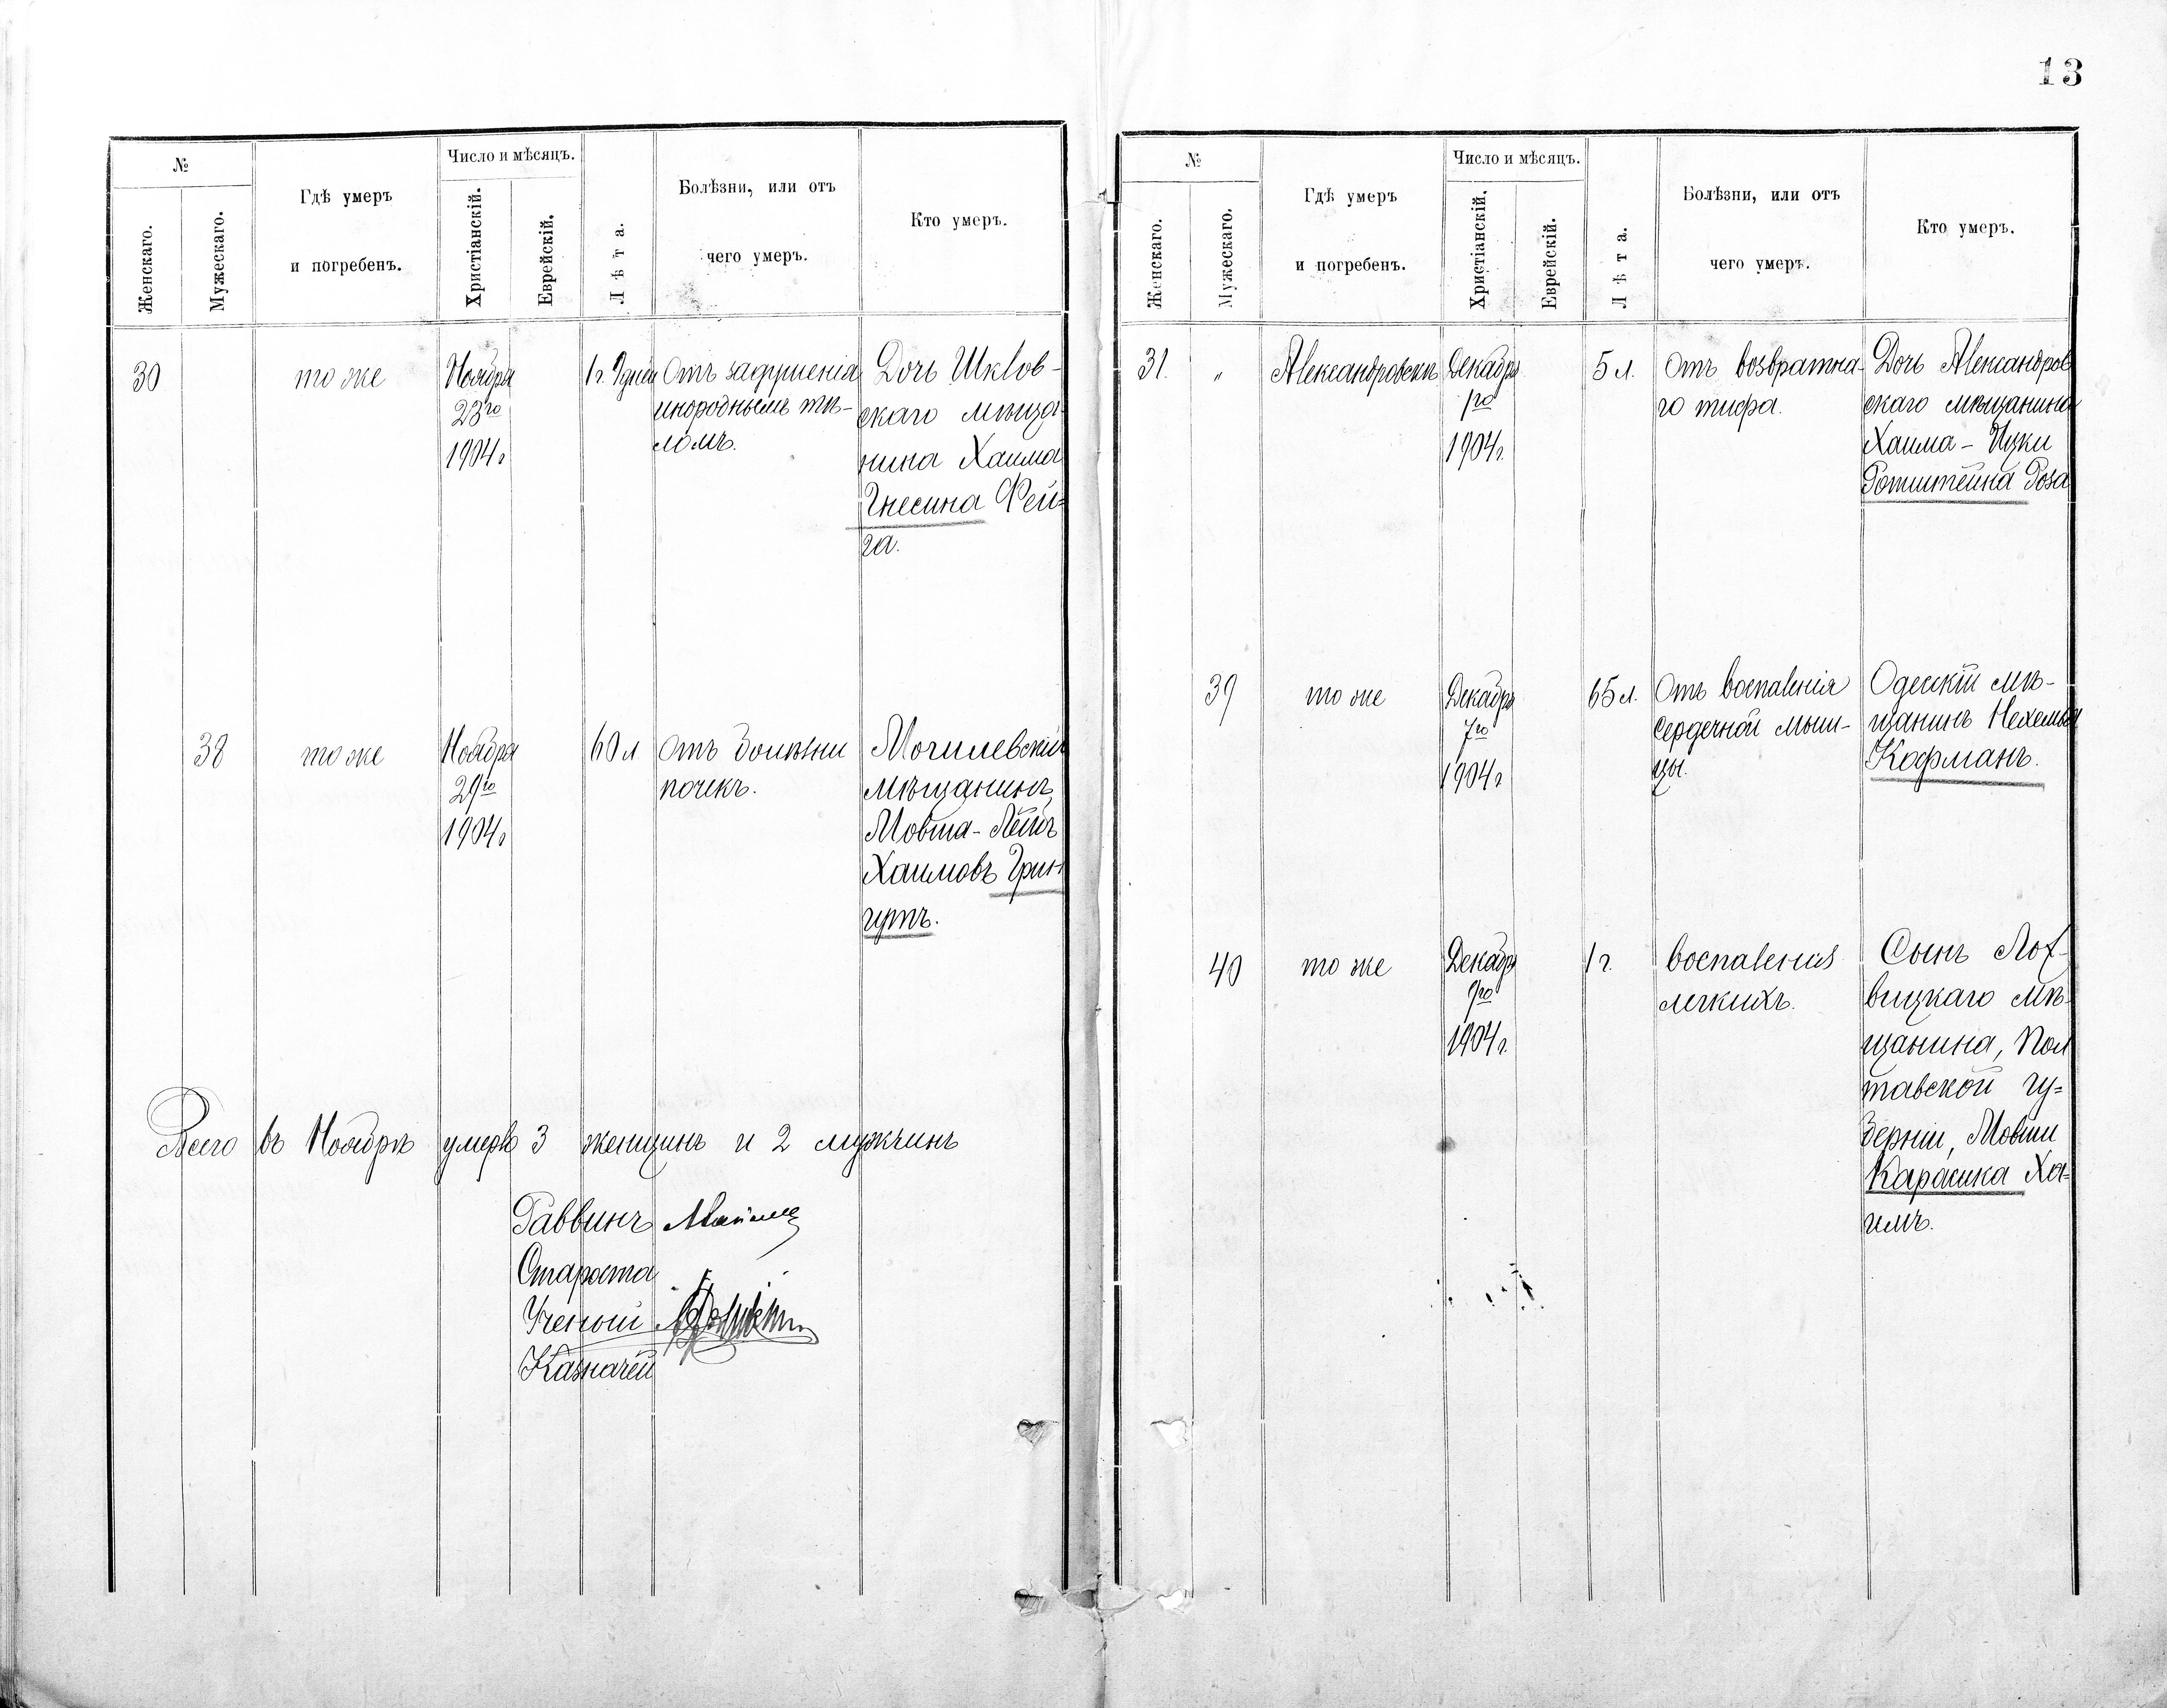 13
№
Женскаго.
Мужескаго.
Гдѣ умеръ
и погребенъ.
Число и мѣсяцъ.
Христіанскій.
Еврейскій.
Лѣта.
Болѣзни, или отъ
чего умеръ.
Кто умеръ.
30
то же
Ноября
23го
1904г
1г. 9 дней
Отъ задушенія
инороднымъ тѣ-
ломъ.
Дочь Шклов-
скаго мѣща-
нина Хаима
Гнесина Фей-
га.
38
то же
Ноября
29го
1904г
60 л
Отъ болѣзни
почекъ.
Могилевскій
мѣщанинъ
Мовша-Лейб
Хаимовъ Грин
гутъ.
Всего въ Ноябрѣ умерло 3 женщинъ и 2 мужчинъ
Раввинъ
Староста
Ученый
Казначей
№
Женскаго.
Мужескаго.
Гдѣ умеръ
и погребенъ.
Число и мѣсяцъ.
Христіанскій.
Еврейскій.
Лѣта.
Болѣзни, или отъ
чего умеръ.
Кто умеръ.
31. "
Александровскъ
Декабря
1го
1904г.
5 л.
Отъ возвратна-
го тифа.
Дочь Александров
скаго мѣщанина
Хаима-Ицки
Ротштейна Роза
39
то же
Декабря
7го
1904г
65 л.
Отъ воспаленія
сердечной мыш-
цы.
Одесскій мѣ-
щанинъ Нехемья
Кофманъ.
40
то же
Декабря
9го
1904г.
1 г.
воспаленія
легкихъ.
Сынъ Лох-
вицкаго мѣ-
щанина, Пол
тавской гу-
берніи, Мовши
Карасика Ха-
имъ.